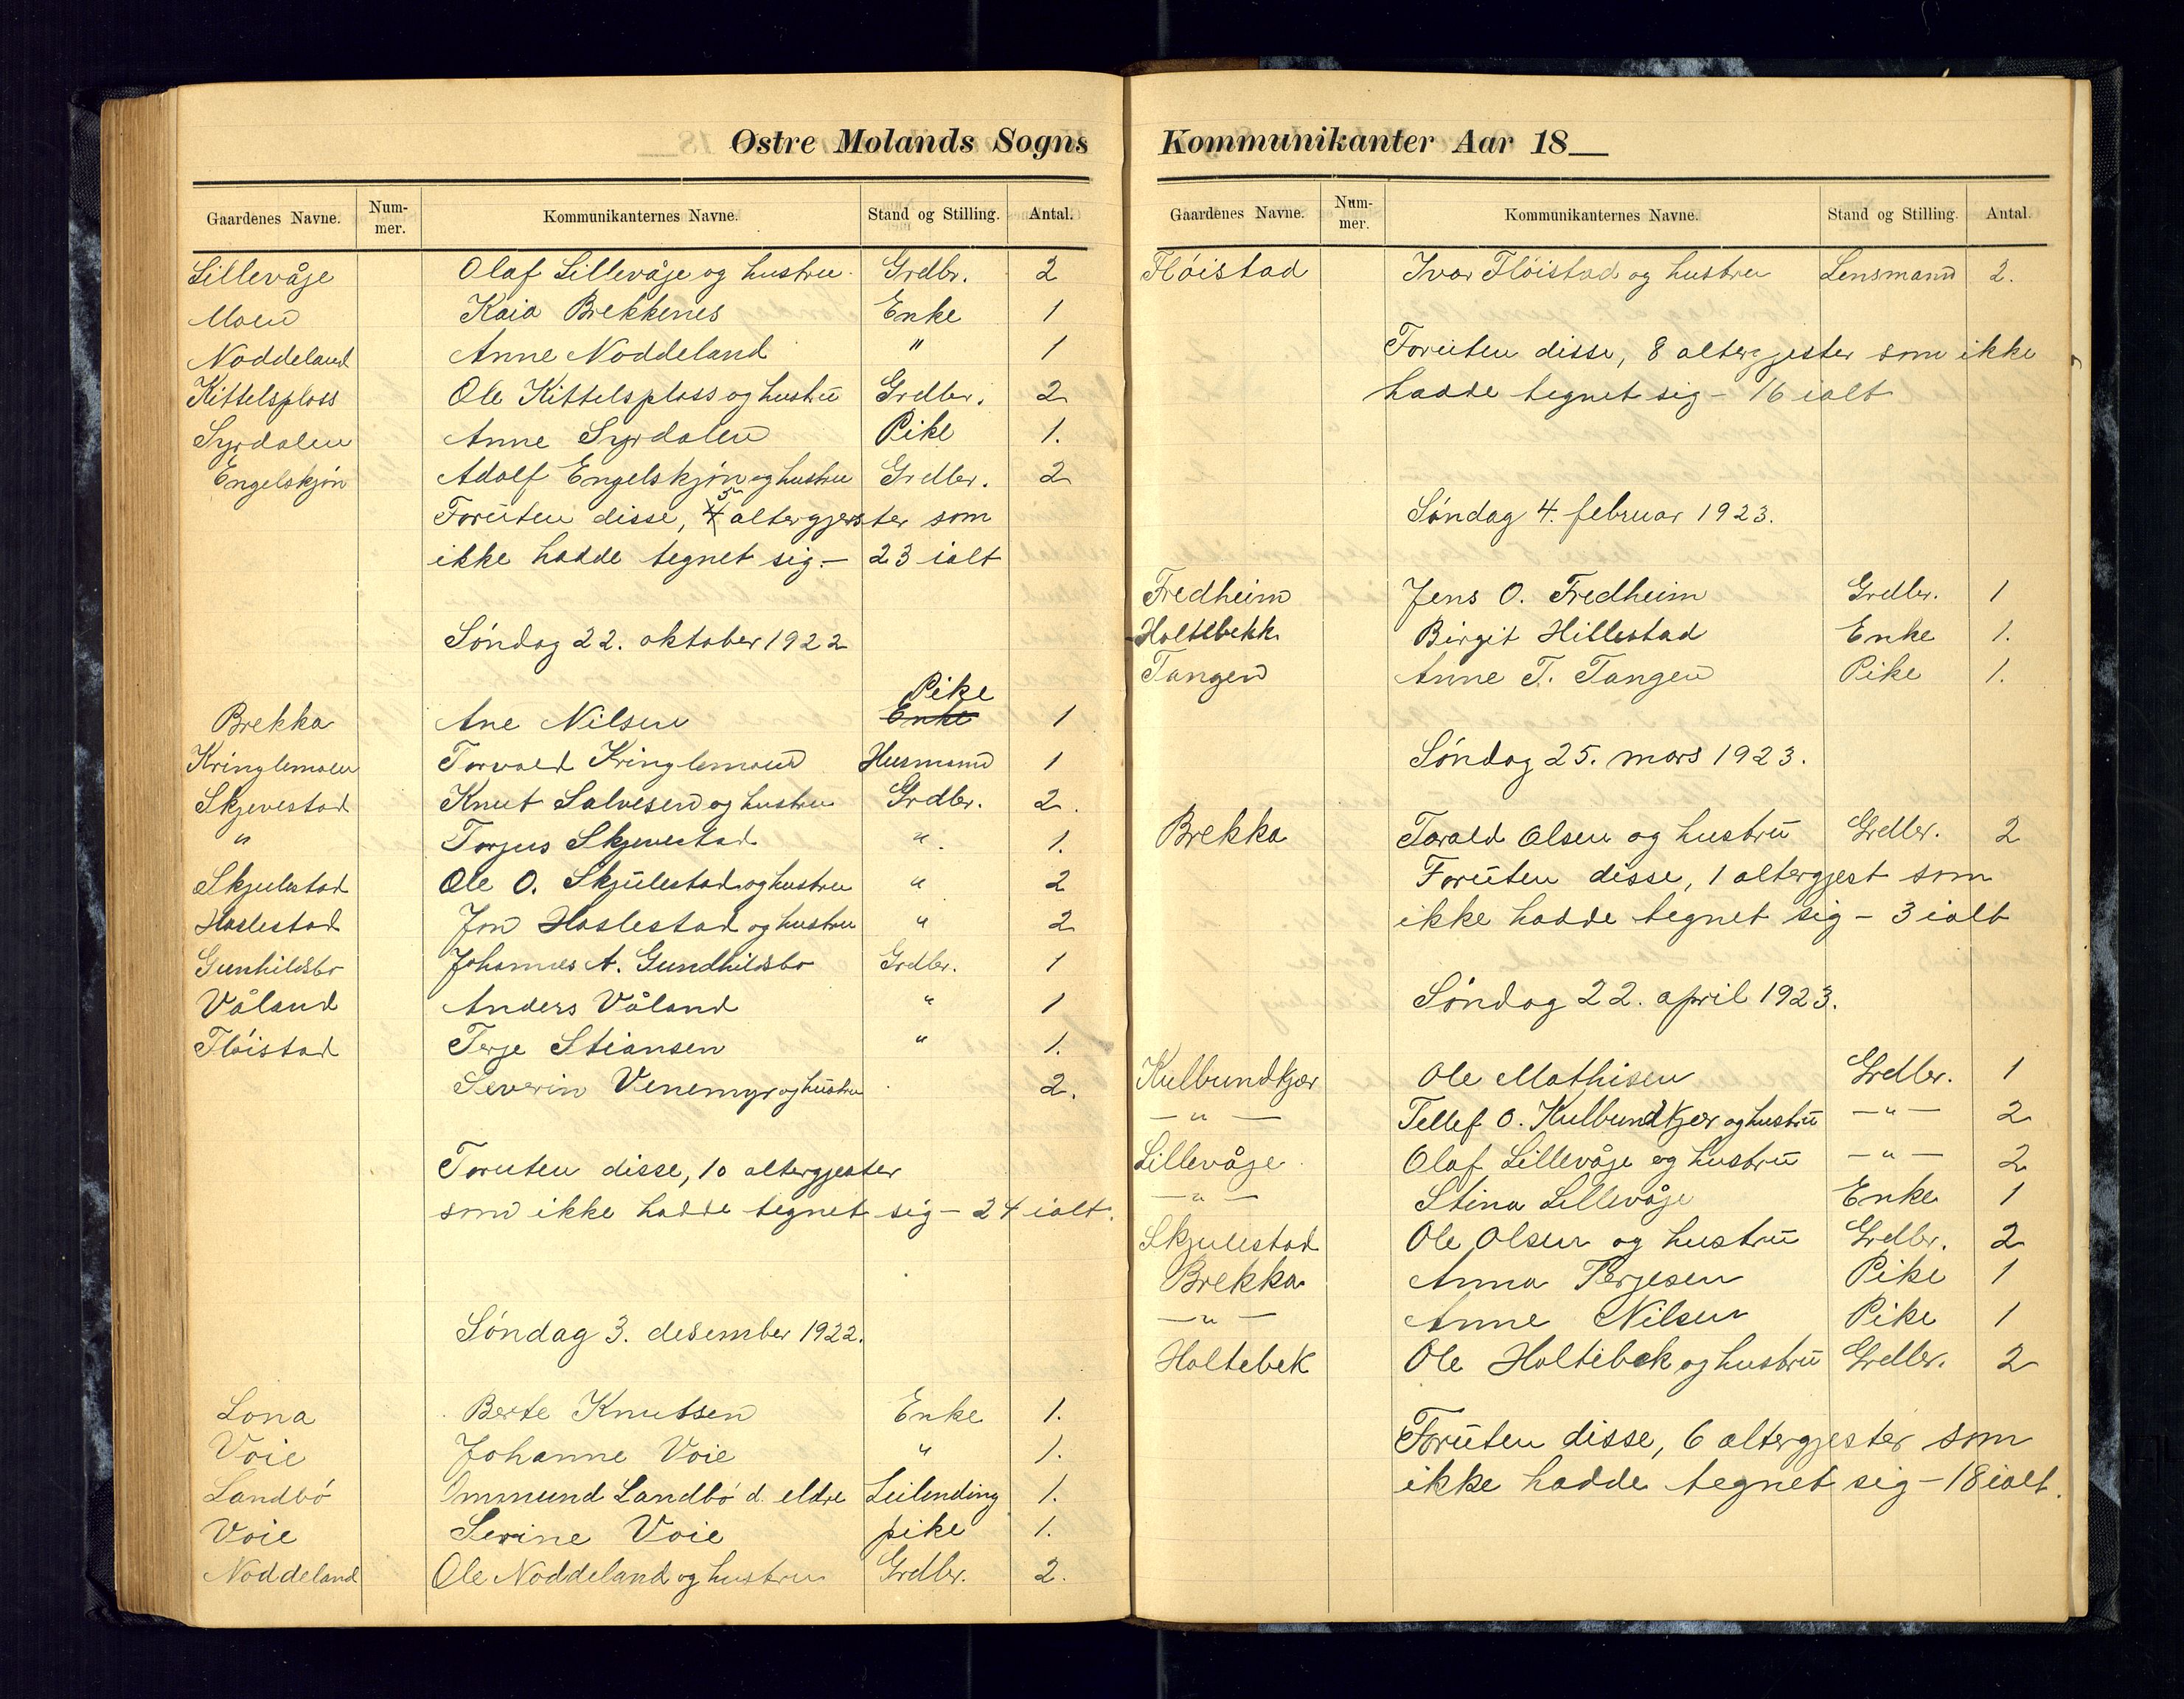 Østre Molands Sogns
Gaardenes Navne. Num- mer. Kommunikanternes Navne. Stand og Stilling. Antal.
Lillevåje Olaf Lillevåje og hustru Grdbr. 2
Moen Kaia Brekkenes Enke 1
Noddeland Anne Noddeland " 1
Kittelsplass Ole Kittelsplass og hustrū Grdbr. 2
Syrdalen Anne Syrdalen Pike 1.
Engelskjøn Adolf Engelskjøn og hustru Grdbr. 2
5
Forūten disse, 4 altergjerster som
ikke hadde tegnet sig. - 23 ialt
Søndag 22. oktober 1922
Pike
Brekka Ane Nilsen Enke 1
Kringlemoen Torvald Kringlemoen Husmand 1
Skjevestad Knut Salvesen og hustru Grdbr. 2.
" Torjus Skjevestad ". 1.
Skjulestad Ole O. Skjūlestad og hustru " 2
Haslestad Jon Haslestad og hustru " 2
Gunhildsbo Johannes A. Gundhildsbo Grdbr. 1
Våland Anders Våland " 1
Flóistad Terje Stiansen " 1.
Severin Venemyr og hūstru 2.
Foruten disse, 10 altergjester
som ikke hadde tegnet sig - 24 ialt.
Søndag 3. desember 1922.
Lona Berte Knutsen Enke 1.
Voie Johanne Voie " 1.
Landbó Ommund Landbó d. eldre Leilending 1.
Voie Serine Voie pike 1.
Noddeland Ole Noddeland og hustru Grdbr. 2.
Kommunikanter Aar 18
Gaardenes Navne. Num- mer. Kommunikanternes Navne. Stand og Stilling. Antal.
Flóistad Ivar Flóistad og hustru Lensmand 2.
Forūten disse, 8 altergjester som ikke
hadde tegnet sig - 16 ialt
Søndag 4. februar 1923.
Fredheim Jens O. Fredheim Grdbr. 1
Holtebekk Birgit Hillestad Enke 1.
Tangen Anne T. Tangen Pike 1.
Søndag 25. mars 1923.
Brekka Tarald Olsen og hustrū Grdbr. 2
Forūten disse, 1 altergjest som
ikke hadde tegnet sig - 3 ialt
Søndag 22. april 1923.
Kulbundkjær Ole Mathisen Grdbr. 1
— " — Tellef O. Kulbundkjær og hustrū — " — 2
Lillevåje Olaf Lillevåje og hustrū — " — 2
— " — Stina Lillevåje Enke 1
Skjulestad Ole Olsen og hustrū Grdbr. 2
Brekka Anna Terjesen Pike 1
— " — Anne Nilsen Pike 1
Holtebek Ole Holtebek og hustrū Grdbr. 2
Forūten disse, 6 altergjester som
ikke hadde tegnet sig - 18 ialt.